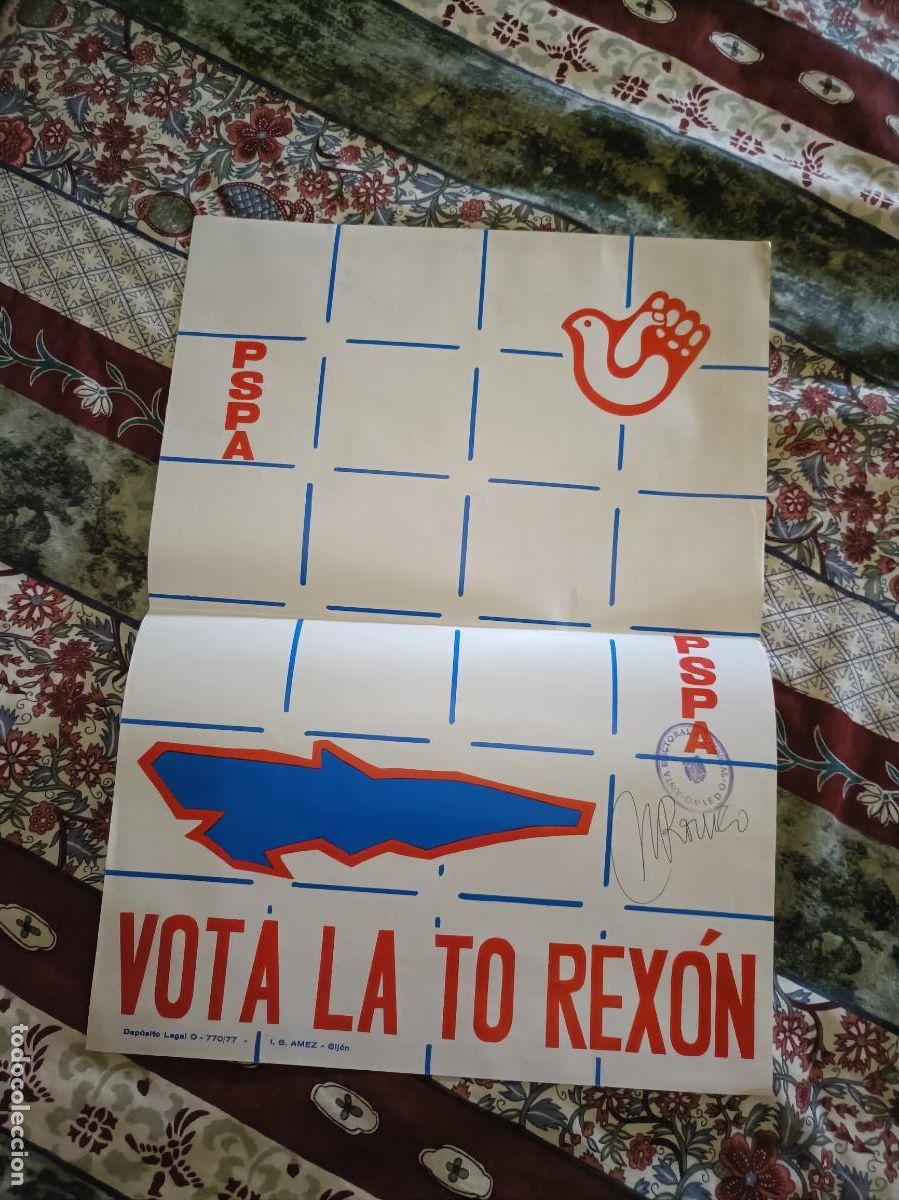 PSPA
PSPA
JUNTA ELECTORAL
OVIEDO
VOTA LA TO REXÓN
Depósito Legal O - 770/77 - I. B. AMEZ - Gijón
todocoleccion